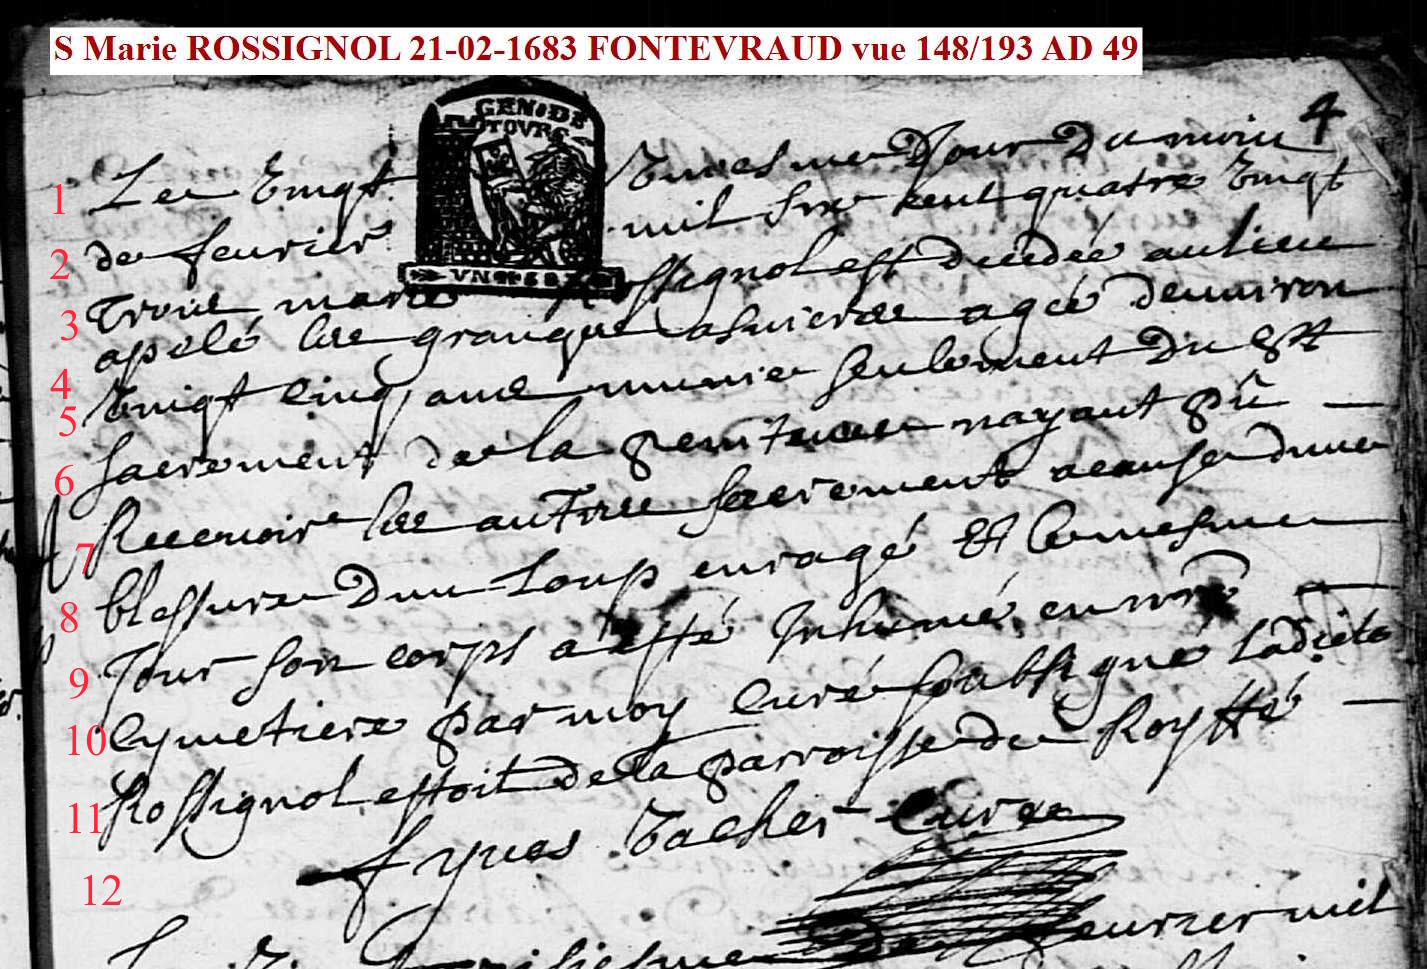 S Marie ROSSIGNOL 21-02-1683 FONTEVRAUD vue 148/193 AD 49
4
GEN DE
TOVRS
1 Le vingt Vniesme Jour du mois
2 de feurier mil six cent quatre vingt
VN
3 Trois marie Rossignol est decedée au lieu
4 apelé les granges asnieres agée denuiron
5 vingt cinq ans munie seulement du
6 sacrement de la penitence nayant pû
7 Receuoir les autres sacrement a cause dune
8 blessure dun Loup enragé Et le mesme
9 Jour son corps a esté Inhumé en nre
10 cymetiere par moy curé soubsigné Ladicte
11 Rossignol estoit de la parroisse de Royffé
12 f yues curé
feurier mil